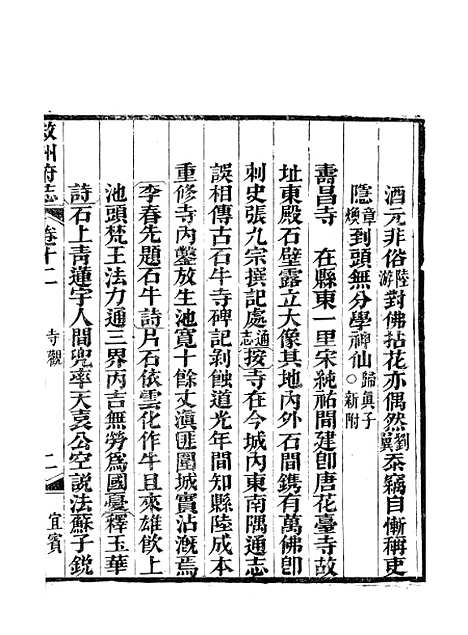 酒元非俗陸游對佛拈花亦偶然劉翼忝竊自慚稱吏
隱章煥到頭無分學神仙歸真子○新附
壽昌寺 在縣東一里宋純祐間建卽唐花臺寺故
址東殿石壁露立大像其地內外石間鐫有萬佛卽
刺史張九宗撰記處通志按寺在今城內東南隅通志
誤相傳古石牛寺碑記剝蝕道光年間知縣陸成本
重修寺內鑿放生池寬十餘丈滇匪圍城實沾漑焉
李春先題石牛詩片石依雲化作牛且來雄飮上
池頭梵王法力通三界丙吉無勞爲國憂釋玉華
詩石上靑蓮宇人間兜率天袁公空說法蘇子銳
敘州府志 卷十二 寺觀 二 宜賓